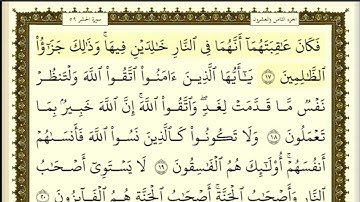 الجزء الثامن والعشرون سورة الحشر ٥٩
فَكَانَ عَٰقِبَتَهُمَآ أَنَّهُمَا فِى ٱلنَّارِ خَٰلِدَيْنِ فِيهَا ۚ وَذَٰلِكَ جَزَٰٓؤُا۟
ٱلظَّٰلِمِينَ ١٧ يَٰٓأَيُّهَا ٱلَّذِينَ ءَامَنُوا۟ ٱتَّقُوا۟ ٱللَّهَ وَلْتَنظُرْ
نَفْسٌ مَّا قَدَّمَتْ لِغَدٍ ۖ وَٱتَّقُوا۟ ٱللَّهَ ۚ إِنَّ ٱللَّهَ خَبِيرٌۢ بِمَا
تَعْمَلُونَ ١٨ وَلَا تَكُونُوا۟ كَٱلَّذِينَ نَسُوا۟ ٱللَّهَ فَأَنسَىٰهُمْ
أَنفُسَهُمْ ۚ أُو۟لَٰٓئِكَ هُمُ ٱلْفَٰسِقُونَ ١٩ لَا يَسْتَوِىٓ أَصْحَٰبُ
ٱلنَّارِ وَأَصْحَٰبُ ٱلْجَنَّةِ ۚ أَصْحَٰبُ ٱلْجَنَّةِ هُمُ ٱلْفَآئِزُونَ ٢٠